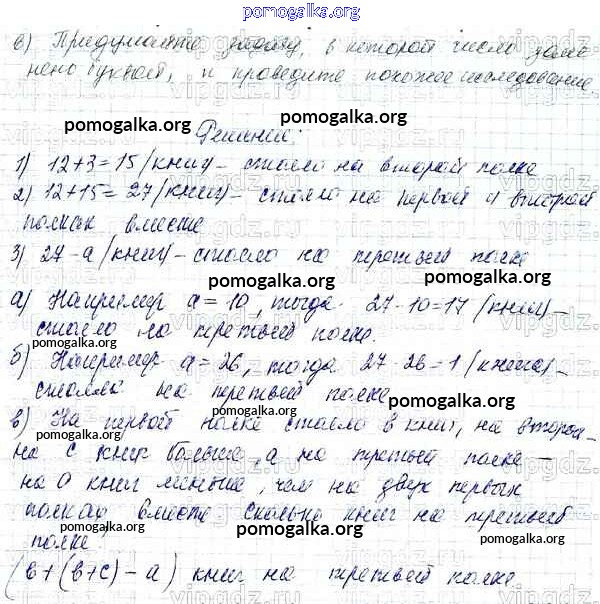 pomogalka.org
в) Придумайте задачу, в которой число заме
нено буквой, и проведите похожее исследование.
pomogalka.org
Решение:
1) 12+3=15 (книг) - стояло на второй полке
pomogalka.org pomogalka.org
2) 12+15=27 (книг) - стояло на первой и второй
полках вместе
3) 27-а (книг) - стояло на третьей полке
pomogalka.org pomogalka.org
а) Например а=10, тогда 27-10=17 (книг) -
стояло на третьей полке.
pomogalka.org
б) Например а=26, тогда 27-26=1 (книга) -
стояла на третьей полке
pomogalka.org
в) На первой полке стояло в книг, на второй -
pomogalka.org
на с книг больше, а на третьей полке -
на а книг меньше, чем на двух первых
полках вместе. Сколько книг на третьей
pomogalka.org pomogalka.org
полке.
(в+(в+с)-а) книг на третьей полке